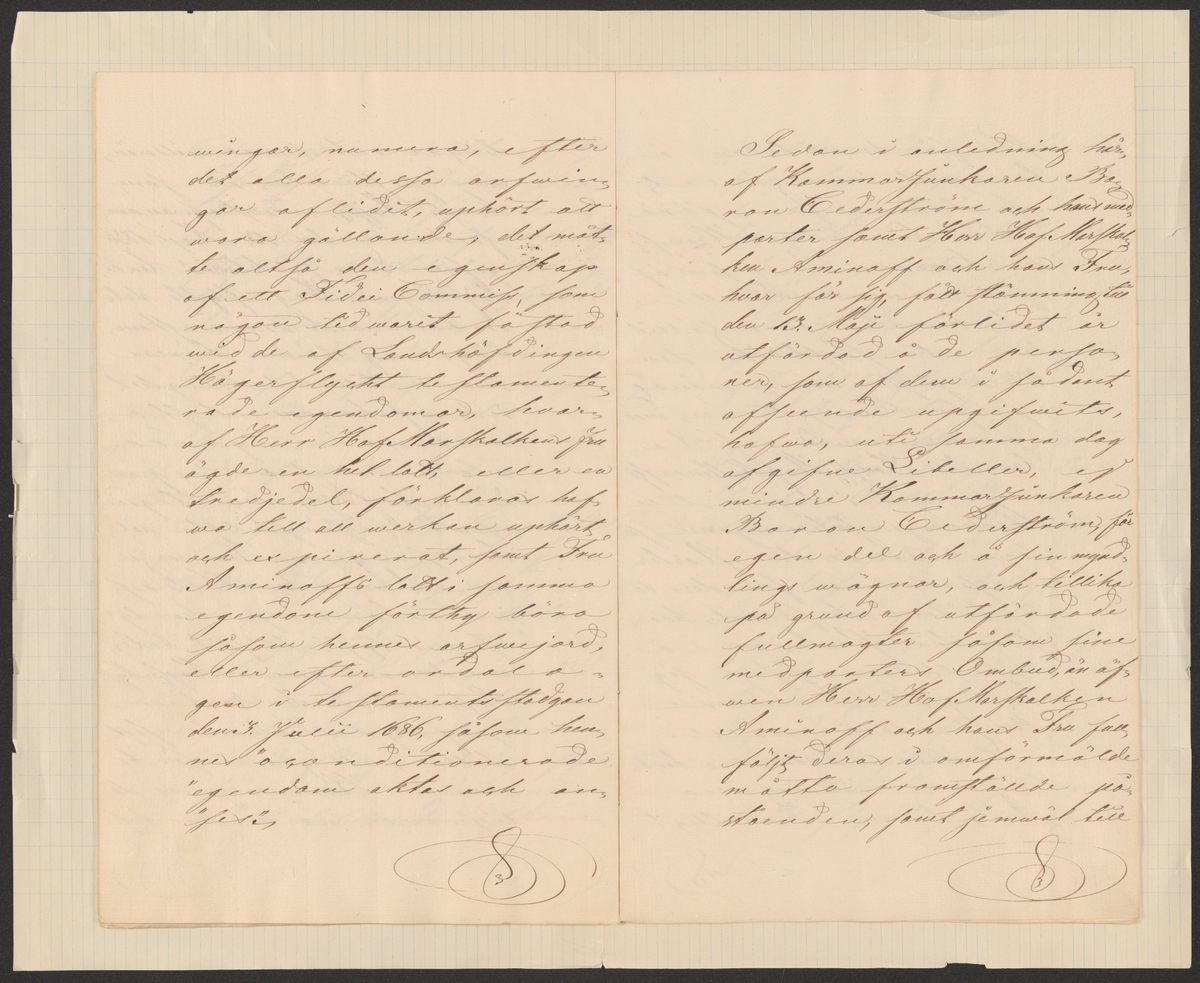 wingar, numera, efter
det alla dessa arfwin-
gar aflidit, uphört att
wara gällande, det måt-
te altså den egenskap
af ett Fidei Commiss, som
någon tid warit fästad
wid de af Landshöfdingen
Hägerflycht testamente-
rade egendomar, hwar-
af Herr HofMarskalkens fru
ägde en hel lott, eller en
tredjedel, förklaras haf-
wa till all werkan uphört
och expirerat, samt Fru
Aminoffs lott i samma
egendom förthy böra
såsom hennes arfwejord,
eller efter ordala-
gen i testamentsstadgan
den 3. Julii 1686, såsom hen-
nes "oconditionerade
"egendom aktas och an-
"ses",
3
Sedan i anledning här-
af Kammarjunkaren Ba-
ron Cederström och hans med-
parter samt Herr HofMarskal-
ken Aminoff och hans Fru,
hvar för sig, fått stämning till
den 13. Maji förlidet år
utfärdad å de perso-
ner, som af dem i sådant
afseende upgifwits,
hafwa, uti samma dag
afgifne Libeller, ej
mindre Kammarjunkaren
Baron Cederström, för
egen del och å sin mynd-
lings wägnar, och tillika
på grund af utfärdade
fullmagter såsom sine
medparters Ombud, än äf-
wen Herr HofMarskalken
Aminoff och hans Fru full-
följt deras i omförmälde
måtto framställde på-
ståenden, samt jemwäl till
3